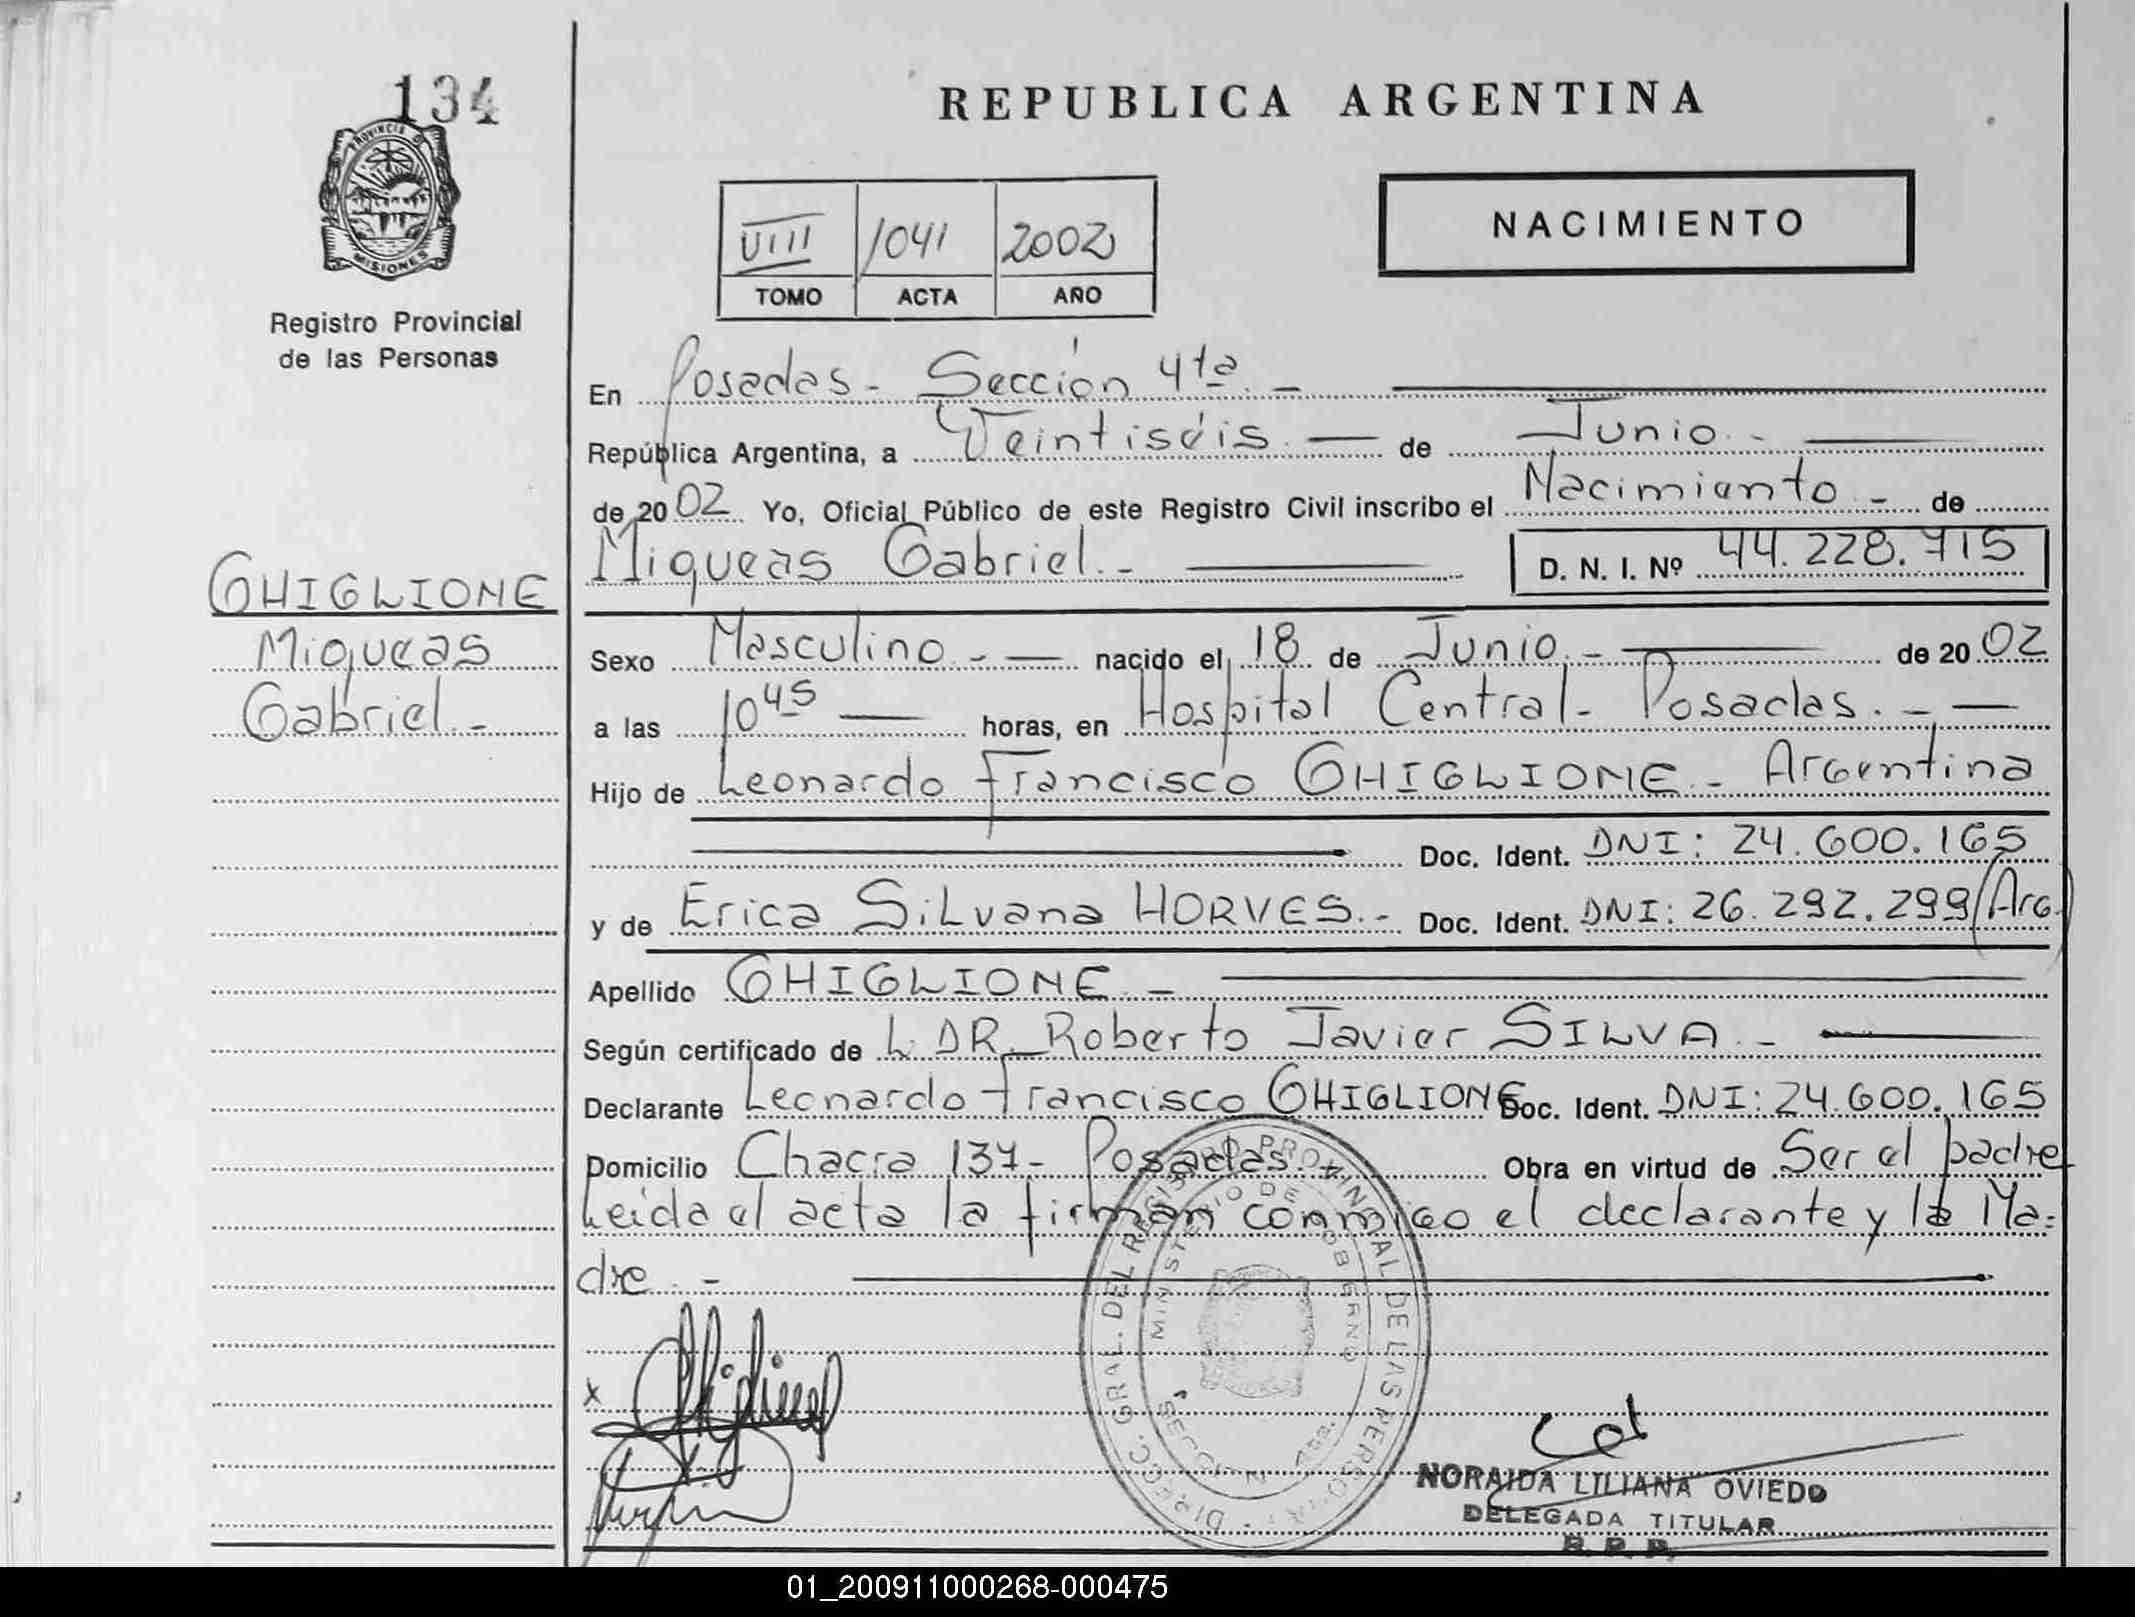 134
PROVINCIA DE
MISIONES
Registro Provincial
de las Personas
REPUBLICA ARGENTINA
VIII 1041 2002
TOMO ACTA AÑO
NACIMIENTO
En Posadas - Sección 4ta. -
República Argentina, a Veintiséis. — de Junio. -
de 2002 Yo, Oficial Público de este Registro Civil inscribo el Nacimiento - de
Miqueas Gabriel. - D. N. I. Nº 44.228.715
GHIGLIONE
Miqueas
Gabriel. -
Sexo Masculino - — nacido el 18 de Junio. - de 2002
a las 10 45 — horas, en Hospital Central - Posadas. - —
Hijo de Leonardo Francisco GHIGLIONE - Argentina
Doc. Ident. DNI: 24.600.165
y de Erica Silvana HORVES. - Doc. Ident. DNI: 26.292.299 (Arg.)
Apellido GHIGLIONE. -
Según certificado de L DR. Roberto Javier SILVA. -
Declarante Leonardo Francisco GHIGLIONE Doc. Ident. DNI: 24.600.165
Domicilio Chacra 137 - Posadas. - Obra en virtud de Ser el padre
Leida el acta la firman conmigo el declarante y la Ma-
dre. -
DIRECC. GRAL. DEL REGISTRO PROVINCIAL DE LAS PERSONAS
MINISTERIO DE GOBIERNO
x
NORAIDA LILIANA OVIEDO
DELEGADA TITULAR
R. P. P.
01_200911000268-000475